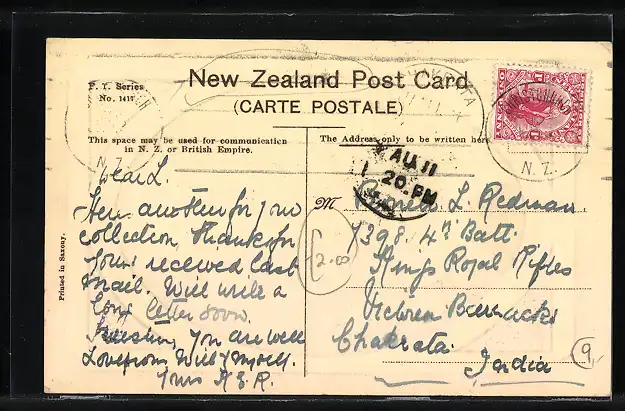 New Zealand Post Card
(CARTE POSTALE)
F. T. Series
No. 1417
This space may be used for communication
in N. Z. or British Empire.
The Address only to be written here
Printed in Saxony.
Dear L.
Here another for your
collection, thanks for
yours received last
mail. Will write a
long letter soon.
you are well
Love from Will & myself.
Yours A.E.R.
2.00
AU 11
20. PM
N. Z.
N. Z.
M
L. Redman.
7398. 4th Batt.
Kings Royal Rifles
Victoria Barracks
Chakrata.
India
9,